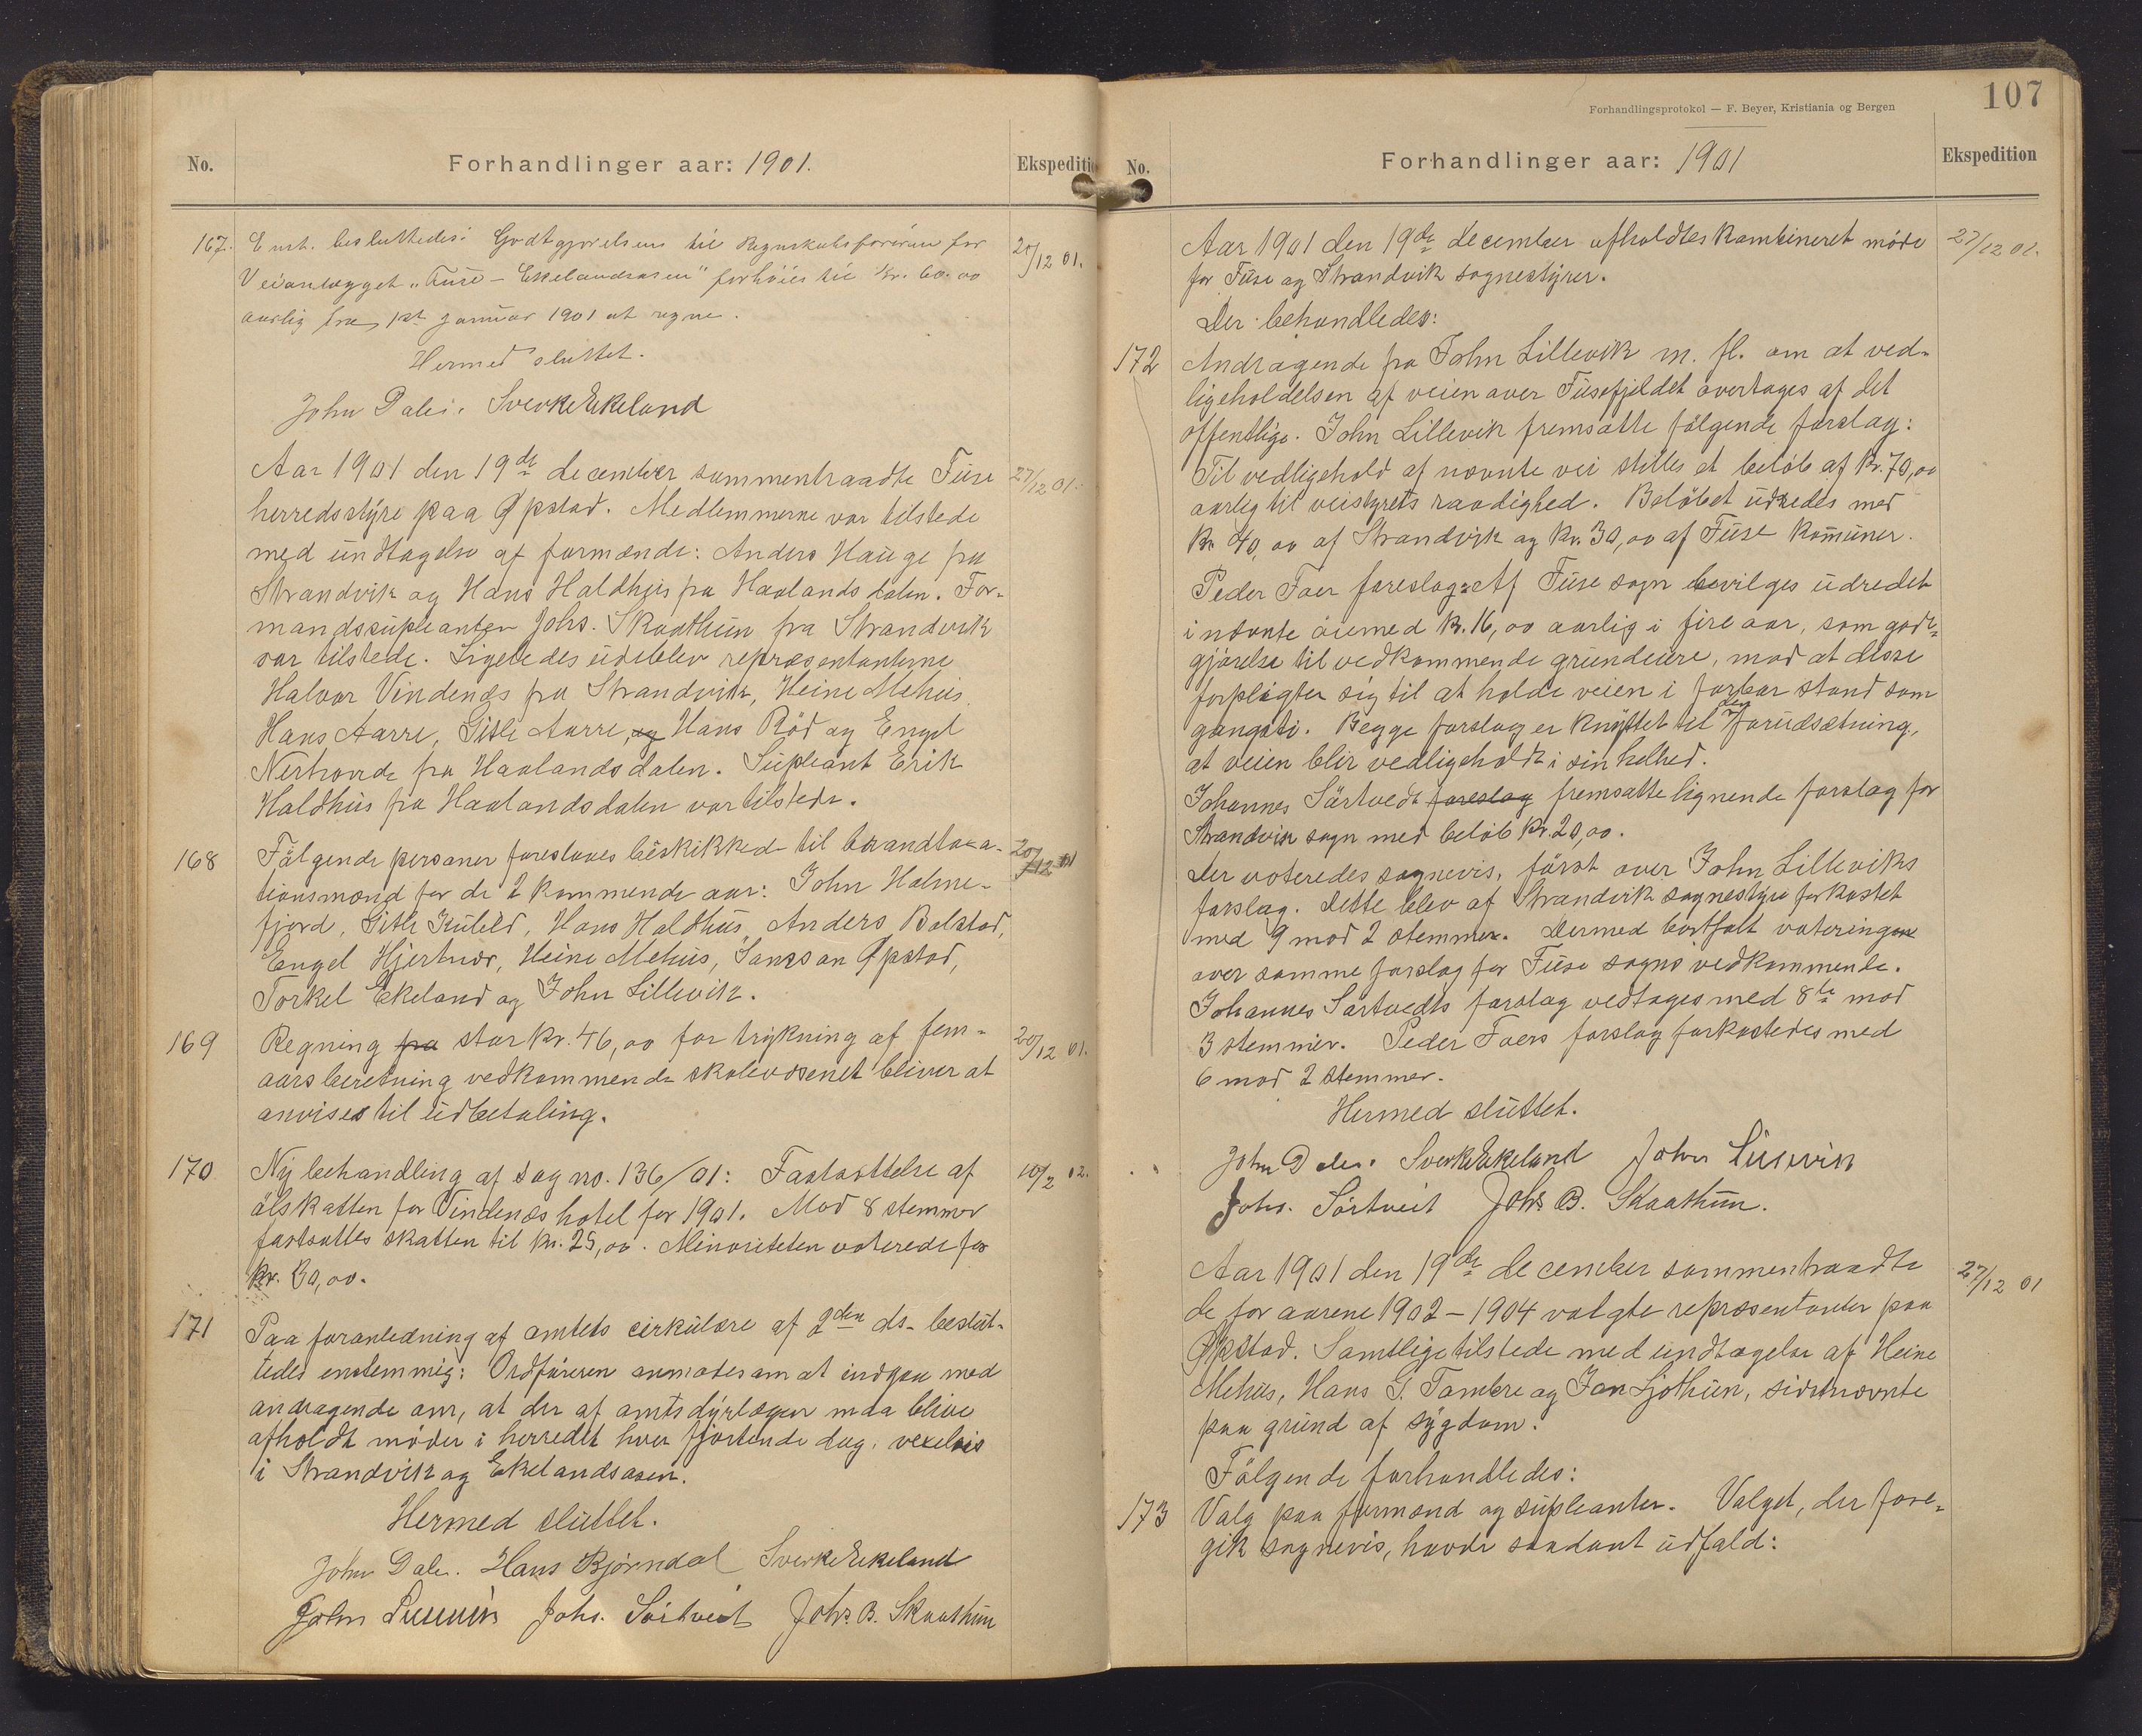 No.
Forhandlinger aar: 1901.
Ekspeditio
167.
Enst. besluttedes: Godtgjörelsen til Regnskabsföreren for
20/12 01.
Veianlægget "Fuse - Ekelandsosen" forhöies til kr. 60.00
aarlig fra 1st januar 1901 at regne.
Hermed sluttet.
John Dale. Sverke Ekeland
Aar 1901 den 19de december sammentraadte Fuse
27/12 01.
herredsstyre paa Opstad. Medlemmerne var tilstede
med undtagelse af formænde: Anders Hauge fra
Strandvik og Hans Haldhus fra Haalandsdalen. For-
mandssupleanten Johs. Skaathun fra Strandvik
var tilstede. Ligeledes udeblev repræsentanterne
Halvor Vindenæs fra Strandvik, Heine Mehus
Hans Aarre, Sitle Aarre, og Hans Röd og Engel
Nertvovde fra Haalandsdalen. Supleant Erik
Haldhus fra Haalandsdalen var tilstede.
168
Fölgende personer foresloges beskikkede til brandtaxa-
20/12 01
tionsmænd for de 2 kommende aar: John Holme-
fjord, Sitle Kuleld, Hans Haldhus, Anders Bolstad,
Engel Hjertnæs, Heine Mehus, Samson Opstad,
Torkel Ekeland og John Lillevik.
169
Regning fra stor kr. 46,00 for trykning af fem-
20/12 01.
aarsberetning vedkommende skolevæsenet bliver at
anvises til udbetaling.
170
Ny behandling af sag no. 136/01: Fastsættelse af
10/2 02.
ölskatten for Vindenæs hotel for 1901. Mod 8 stemmer
fastsattes skatten til kr. 25,00. Minoriteten voterede for
kr. 30,00.
171
Paa foranledning af amtets cirkulære af 2den ds. beslut-
tedes enstemmig: Ordföreren anmodes om at indgaa med
andragende om, at der af amtsdyrlægen maa blive
afholdt möder i herredet hver fjortende dag, vexelvis
i Strandvik og Ekelandsosen.
Hermed sluttet.
John Dale. Hans Bjørndal Sverke Ekeland
John Lillevik Johs. Sörtveit Johs. B. Skaathun
107
Forhandlingsprotokol — F. Beyer, Kristiania og Bergen
No.
Forhandlinger aar: 1901
Ekspedition
Aar 1901 den 19de december afholdtes kombineret möde
27/12 01.
for Fuse og Strandvik sognestyrer.
Der behandledes:
172
Andragende fra John Lillevik m. fl. om at ved-
ligeholdelsen af veien over Fusefjeldet overtages af det
offentlige. John Lillevik fremsatte fölgende forslag:
Til vedligehold af nævnte vei stilles et belöb af kr. 70,00
aarlig til veistyrets raadighed. Belöbet udredes med
kr. 40,00 af Strandvik og kr. 30,00 af Fuse kommuner.
Peder Foer foreslog: Af Fuse sogn bevilges udredet
i nævnte öiemed kr. 16,00 aarlig i fire aar, som godt-
gjörelse til vedkommende grundeiere, mod at disse
forpligter sig til at holde veien i farbar stand som
gangsti. Begge forslag er knyttet til den forudsætning,
at veien blir vedligeholdt i sin helhed.
Johannes Sörtvedt foreslog fremsatte lignende forslag for
Strandvik sogn med belöb kr. 20,00.
Der voteredes sognevis, först over John Lilleviks
forslag. Dette blev af Strandvik sognestyre forkastet
med 9 mod 2 stemmer. Dermed bortfalt voteringen
over samme forslag for Fuse sogns vedkommende.
Johannes Sörtvedts forslag vedtages med 8te mod
3 stemmer. Peder Foers forslag forkastedes med
6 mod 2 stemmer.
Hermed sluttet.
John Dale. Sverke Ekeland John Lillevik
Johs. Sörtveit Johs. B. Skaathun.
Aar 1901 den 19de december sammentraadte
27/12 01
de for aarene 1902 - 1904 valgte repræsentanter paa
Opstad. Samtlige tilstede med undtagelse af Heine
Mehus, Hans G. Tombre og Jon Ljothun, sidstnævnte
paa grund af sygdom.
Fölgende forhandledes:
173
Valg paa formænd og supleanter. Valget, der fore-
gik sognevis, havde saadant udfald: